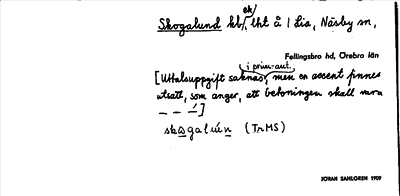 ek/
Skogalund kb/, lht å 1 Lia, Näsby sn,
Fellingsbro hd, Örebro län
i prim.-aut.
[Uttalsuppgift saknas, men en accent finnes
utsatt, som anger, att betoningen skall vara
– – –́ ]
skogalún (TrMS)
JÖRAN SAHLGREN 1909